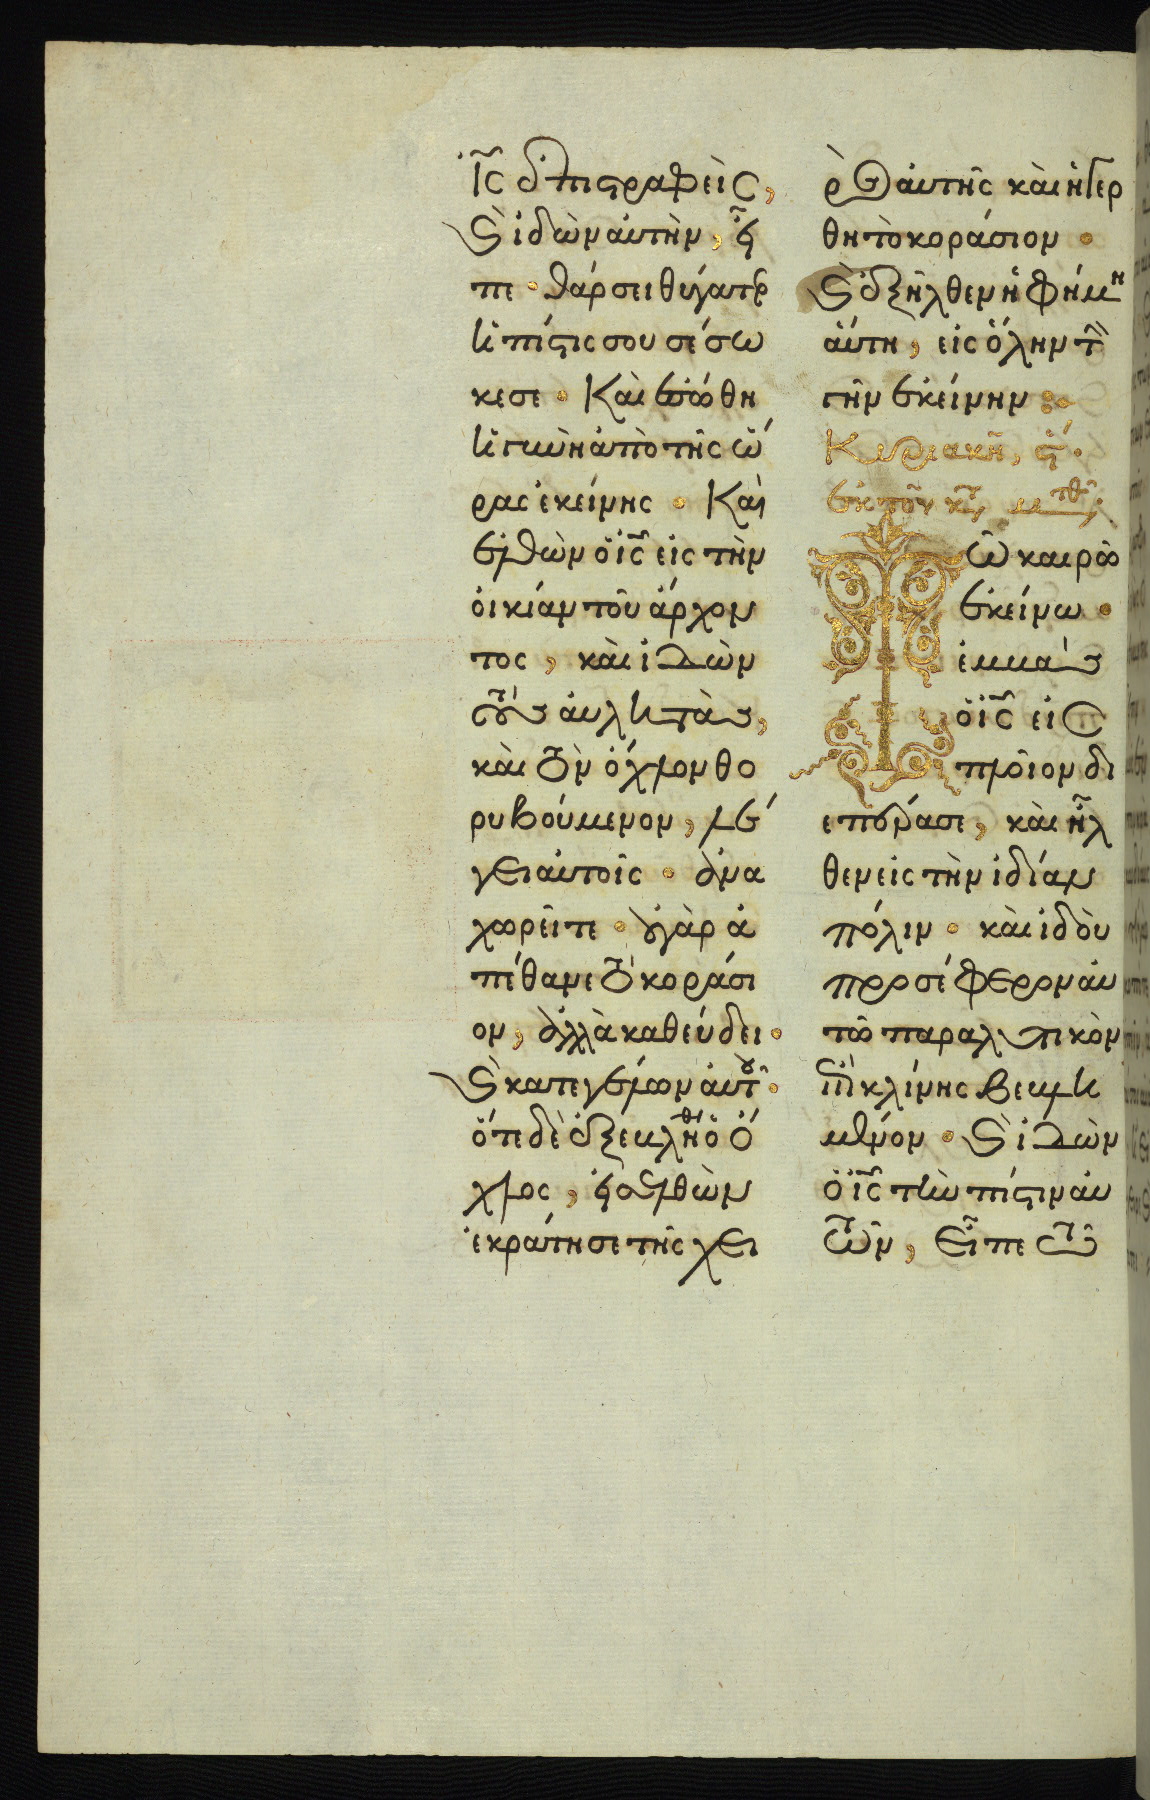 ἰ̅ς̅ ἐπιστραφεὶς,
καὶ ἰδὼν αὐτὴν, εἶ
πε · θάρσει θύγατερ
ἡ πίστις σου σέσω
κε σε · Καὶ ἐσώθη
ἡ γυνὴ ἀπὸ τῆς ὥ
ρας ἐκείνης · Καὶ
ἐλθὼν ὁ ἰ̅ς̅ εἰς τὴν
οἰκίαν τοῦ ἄρχον
τος, καὶ ἰδὼν
τοὺς αὐλητὰς,
καὶ τὸν ὄχλον θο
ρυβούμενον, λέ
γει αὐτοῖς · ἀνα
χωρεῖτε · οὐ γὰρ ἀ
πέθανε τὸ κοράσι
ον, ἀλλὰ καθεύδει ·
καὶ κατεγέλων αὐτοῦ ·
ὅτε δὲ ἐξεβλήθη ὁ ὄ
χλος, εἰσελθὼν
ἐκράτησε τῆς χει
ρὸς αὐτῆς καὶ ἠγέρ
θη τὸ κοράσιον ·
καὶ ἐξῆλθεν ἡ φήμη
αὕτη, εἰς ὅλην τὴν
γῆν ἐκείνην :·
Κυριακῆ, ϛ΄ ·
ἐκ τοῦ κατὰ ματθ ·
Τῶ καιρῶ
ἐκείνω ·
ἐμβὰς
ὁ ἰ̅ς̅ εἰς
πλοῖον δι
επέρασε, καὶ ἦλ
θεν εἰς τὴν ἰδίαν
πόλιν · καὶ ἰδοὺ
προσέφερον αὐ
τῶ παραλυτικὸν
ἐπὶ κλίνης βεβλη
μένον · καὶ ἰδὼν
ὁ ἰ̅ς̅ τὴν πίστιν αὐ
τῶν, εἶπε τῶ